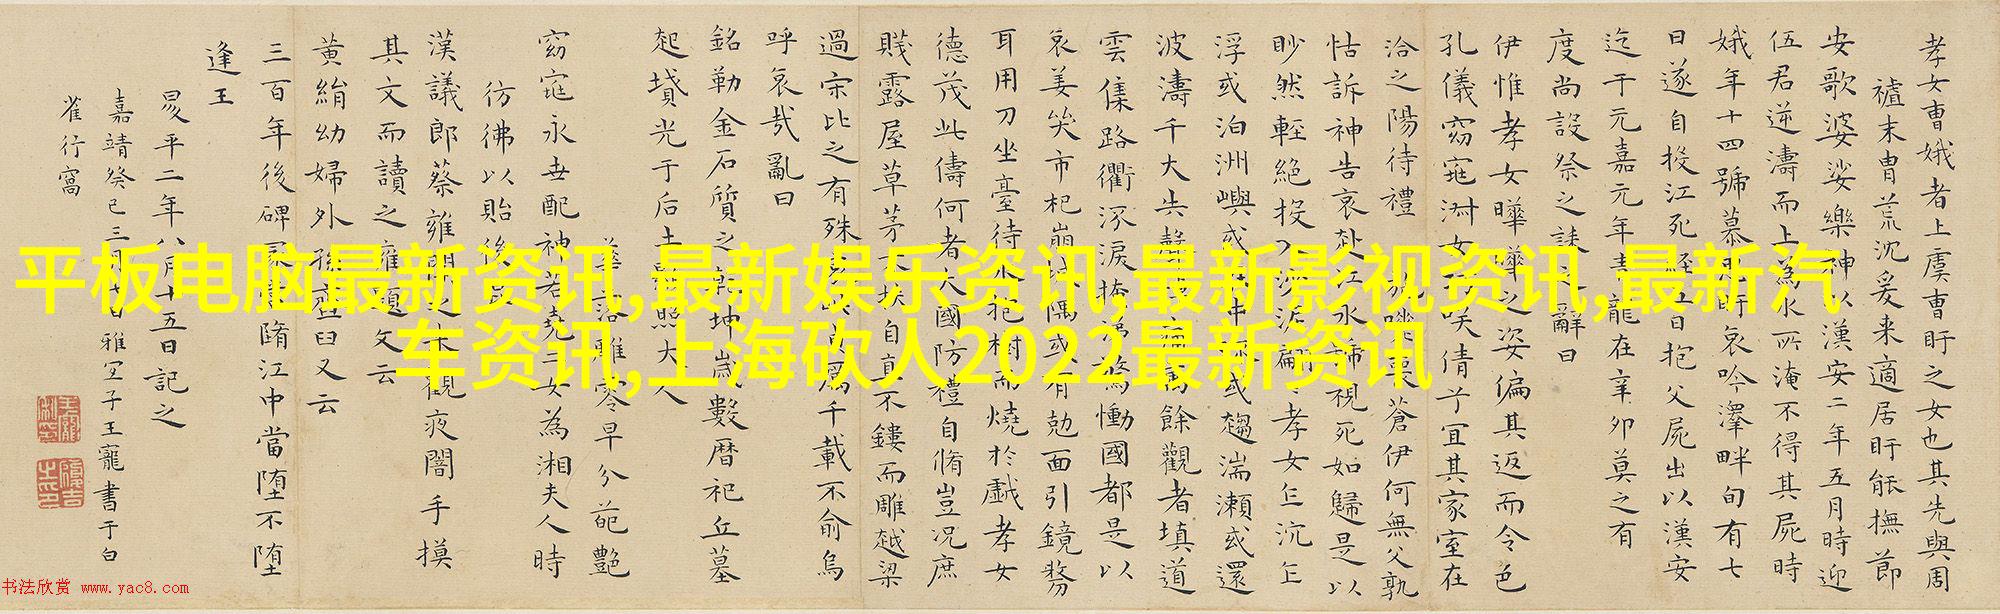 孝女曹娥者上虞曹盱之女也其先與周
禮末胄荒沈爰来適居盱能撫節
安歌婆娑樂神以漢安二年五月時迎
伍君逆濤而上為水所淹不得其屍時
娥年十四號慕思盱哀吟澤畔旬有七
日遂自投江死經五日抱父屍出以漢安
迄于元嘉元年青龍在辛卯莫之有
度尚設祭之誄之辭曰
伊惟孝女曄曄之姿偏其返而令色
孔儀窈窕淑女巧笑倩兮宜其家室在
洽之陽待禮嗟喪蒼伊何無父孰
怙訴神告哀赴江永號視死如歸是以
眇然輕絕投入沙泥翩翩孝女乍沉乍
浮或泊洲嶼或在中流或趨湍瀬或還
波濤千夫失聲悼痛萬餘觀者填道
雲集路衢泝淚掩涕驚慟國都是以
哀姜哭市杞崩城隅或有尅面引鏡剺
耳用刀坐臺待水抱樹而燒於戲孝女
德茂此儔何者大國防禮自脩豈况庶
賤露屋草茅不扶自直不鏤而雕越梁
過宋比之有殊哀此貞厲千載不渝烏
呼哀哉亂曰
銘勒金石質之乾坤歲數曆祀丘墓
起墳光于后土顯照夫人
華落雕零早分葩艷
窈窕永世配神若堯二女為湘夫人時
彷彿以貽後昆
漢議郎蔡雍聞之来觀夜闇手摸
其文而讀之雍題文云
黄絹幼婦外孫齏臼又云
三百年後碑冢當墮江中當堕不堕
逢王
昇平二年八月十五日記之
嘉靖癸巳三月日雅宜子王寵書于白
雀行窩
平板电脑最新资讯,最新娱乐资讯,最新影视资讯,最新汽
车资讯,上海砍人2022最新资讯
书法欣赏 www.yac8.com